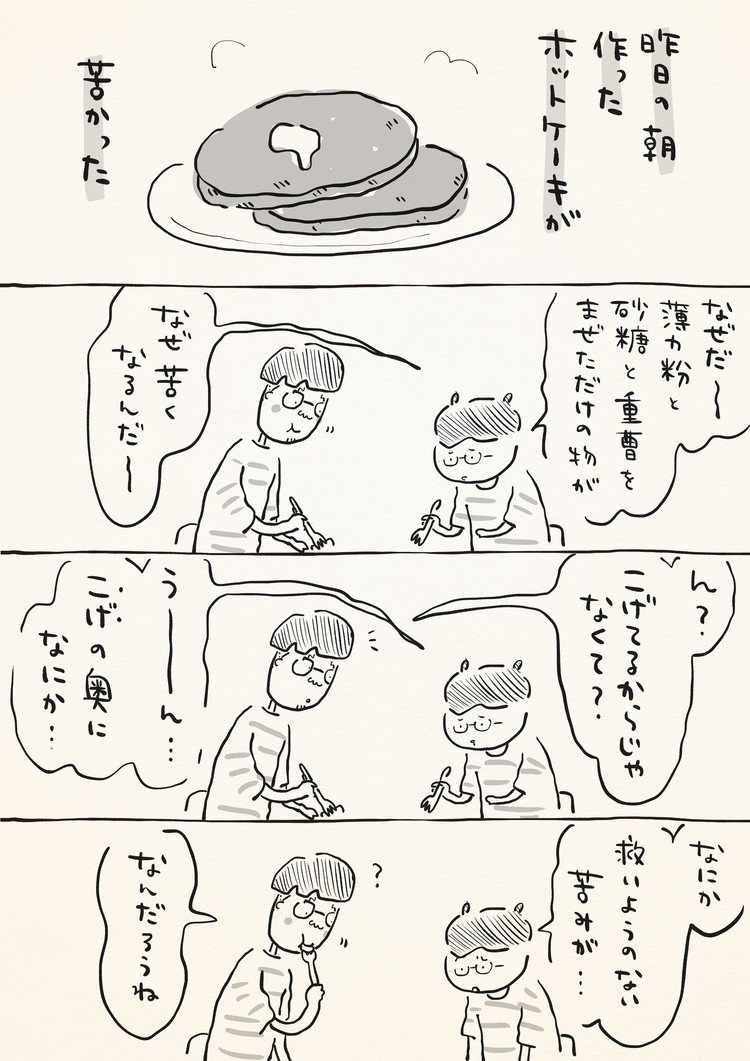 昨日の朝
作った
ホットケーキが
苦かった
なぜだー
薄力粉と
砂糖と重曹を
まぜただけの物が
なぜ苦く
なるんだー
ん?
こげてるからじゃ
なくて?
うーーん…
こげの奥に
なにか…
なにか
救いようのない
苦みが…
?
なんだろうね